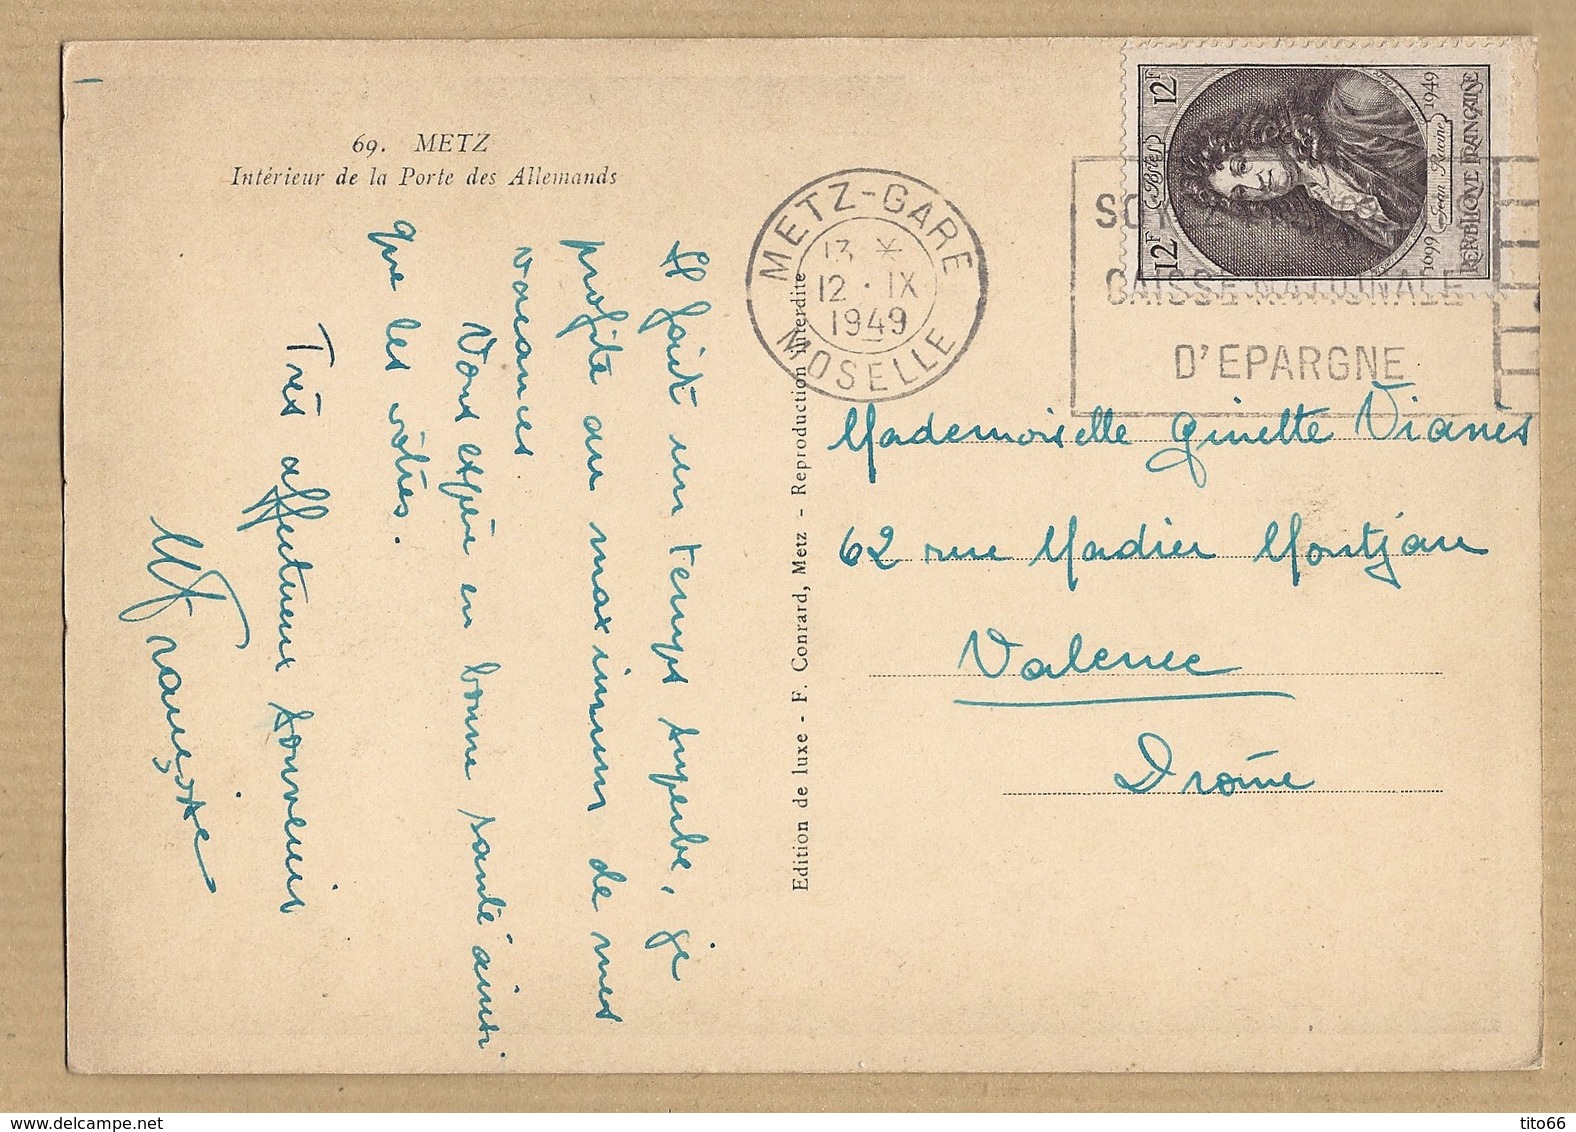 69. METZ
Intérieur de la Porte des Allemands
Il fait un temps superbe, je
profite au maximum de mes
vacances
Vous espère en bonne santé ainsi
que les vôtres.
Très affectueux souvenirs
Françoise
Edition de luxe - F. Conrard, Metz - Reproduction interdite
METZ-GARE
13 *
12 · IX
1949
MOSELLE
CAISSE NATIONALE
D'EPARGNE
12F Postes 12F
1699 Jean Racine 1949
REPUBLIQUE FRANÇAISE
Mademoiselle Ginette Vianès
62 rue Madier Montjau
Valence
Drôme
www.delcampe.net
tito66